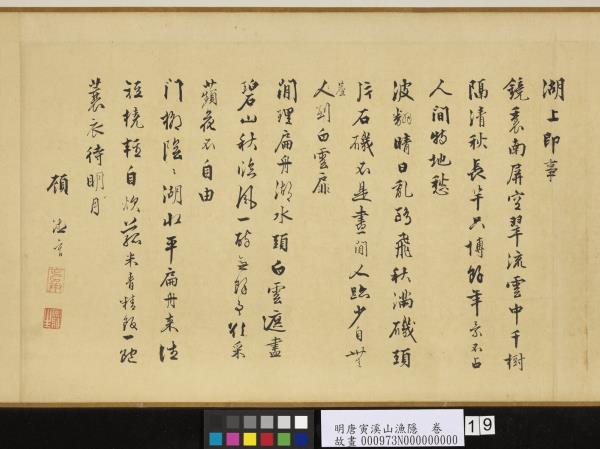 湖上即事
鏡裏南屏空翠流雲中千樹
隔清秋長竿只博餘年景不占
人間特地愁
波翻晴日亂飛秋滿磯頭
片石磯不是畫間人跡少自無
塵
人到白雲扉
閒理扁舟湖水頭白雲遮盡
碧山秋臨風一無餘事采
蘋花不自由
門柳陰〻湖水平扁舟來往
短橈輕自炊菰米青精飯一
蓑衣待明月
顧
明唐寅溪山漁隱 卷
故畫 000973N000000000
19